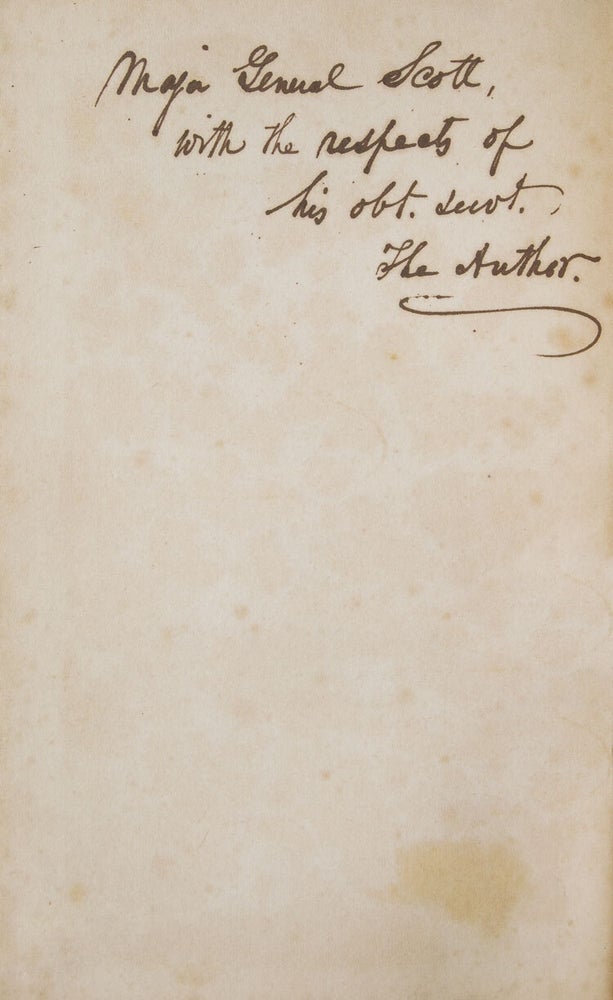 Major General Scott,
with the respects of
his obt. servt.,
The Author.